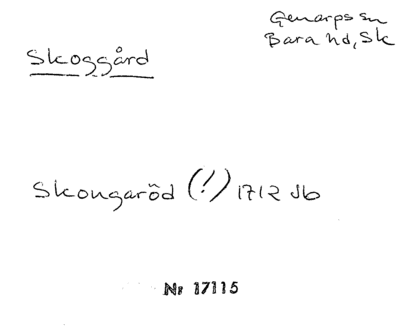 Genarps sn
Bara hd, Sk
Skoggård
Skongaröd (!) 1712 Jb
Nr 17115